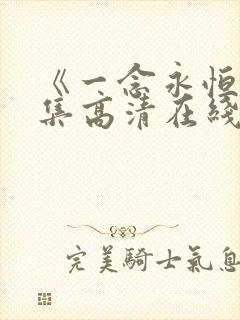 《一念永恒
集高清在綫
完美騎士氣息